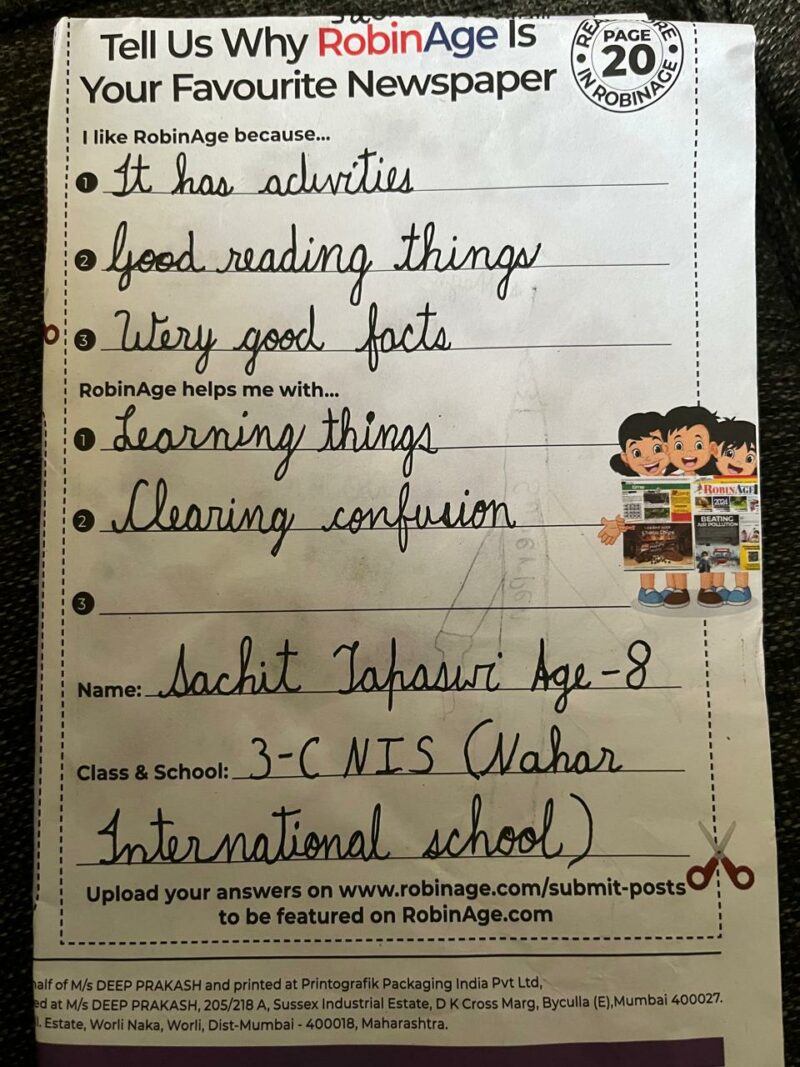 Tell Us Why RobinAge Is
Your Favourite Newspaper
PAGE
20
IN ROBINAGE
I like RobinAge because...
1 It has activities
2 Good reading things
3 Very good facts
RobinAge helps me with...
1 Learning things
2 Clearing confusion
3
ROBINAGE
2024
BEATING
AIR POLLUTION
Name: Sachit Tapaswi Age-8
Class & School: 3-C NIS (Nahar
International school)
Upload your answers on www.robinage.com/submit-posts
to be featured on RobinAge.com
half of M/s DEEP PRAKASH and printed at Printografik Packaging India Pvt Ltd,
ed at M/s DEEP PRAKASH, 205/218 A, Sussex Industrial Estate, D K Cross Marg, Byculla (E),Mumbai 400027.
l. Estate, Worli Naka, Worli, Dist-Mumbai - 400018, Maharashtra.